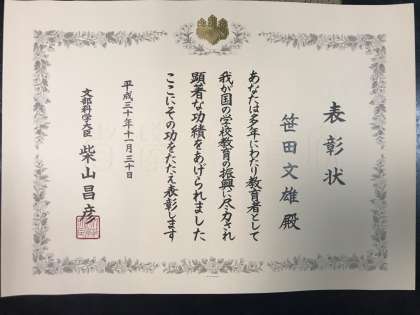 表彰状
笹田文雄殿
あなたは多年にわたり教育者として
我が国の学校教育の振興に尽力され
顕著な功績をあげられました
ここにその功をたたえ表彰します
平成三十年十一月三十日
文部科学大臣 柴山昌彦